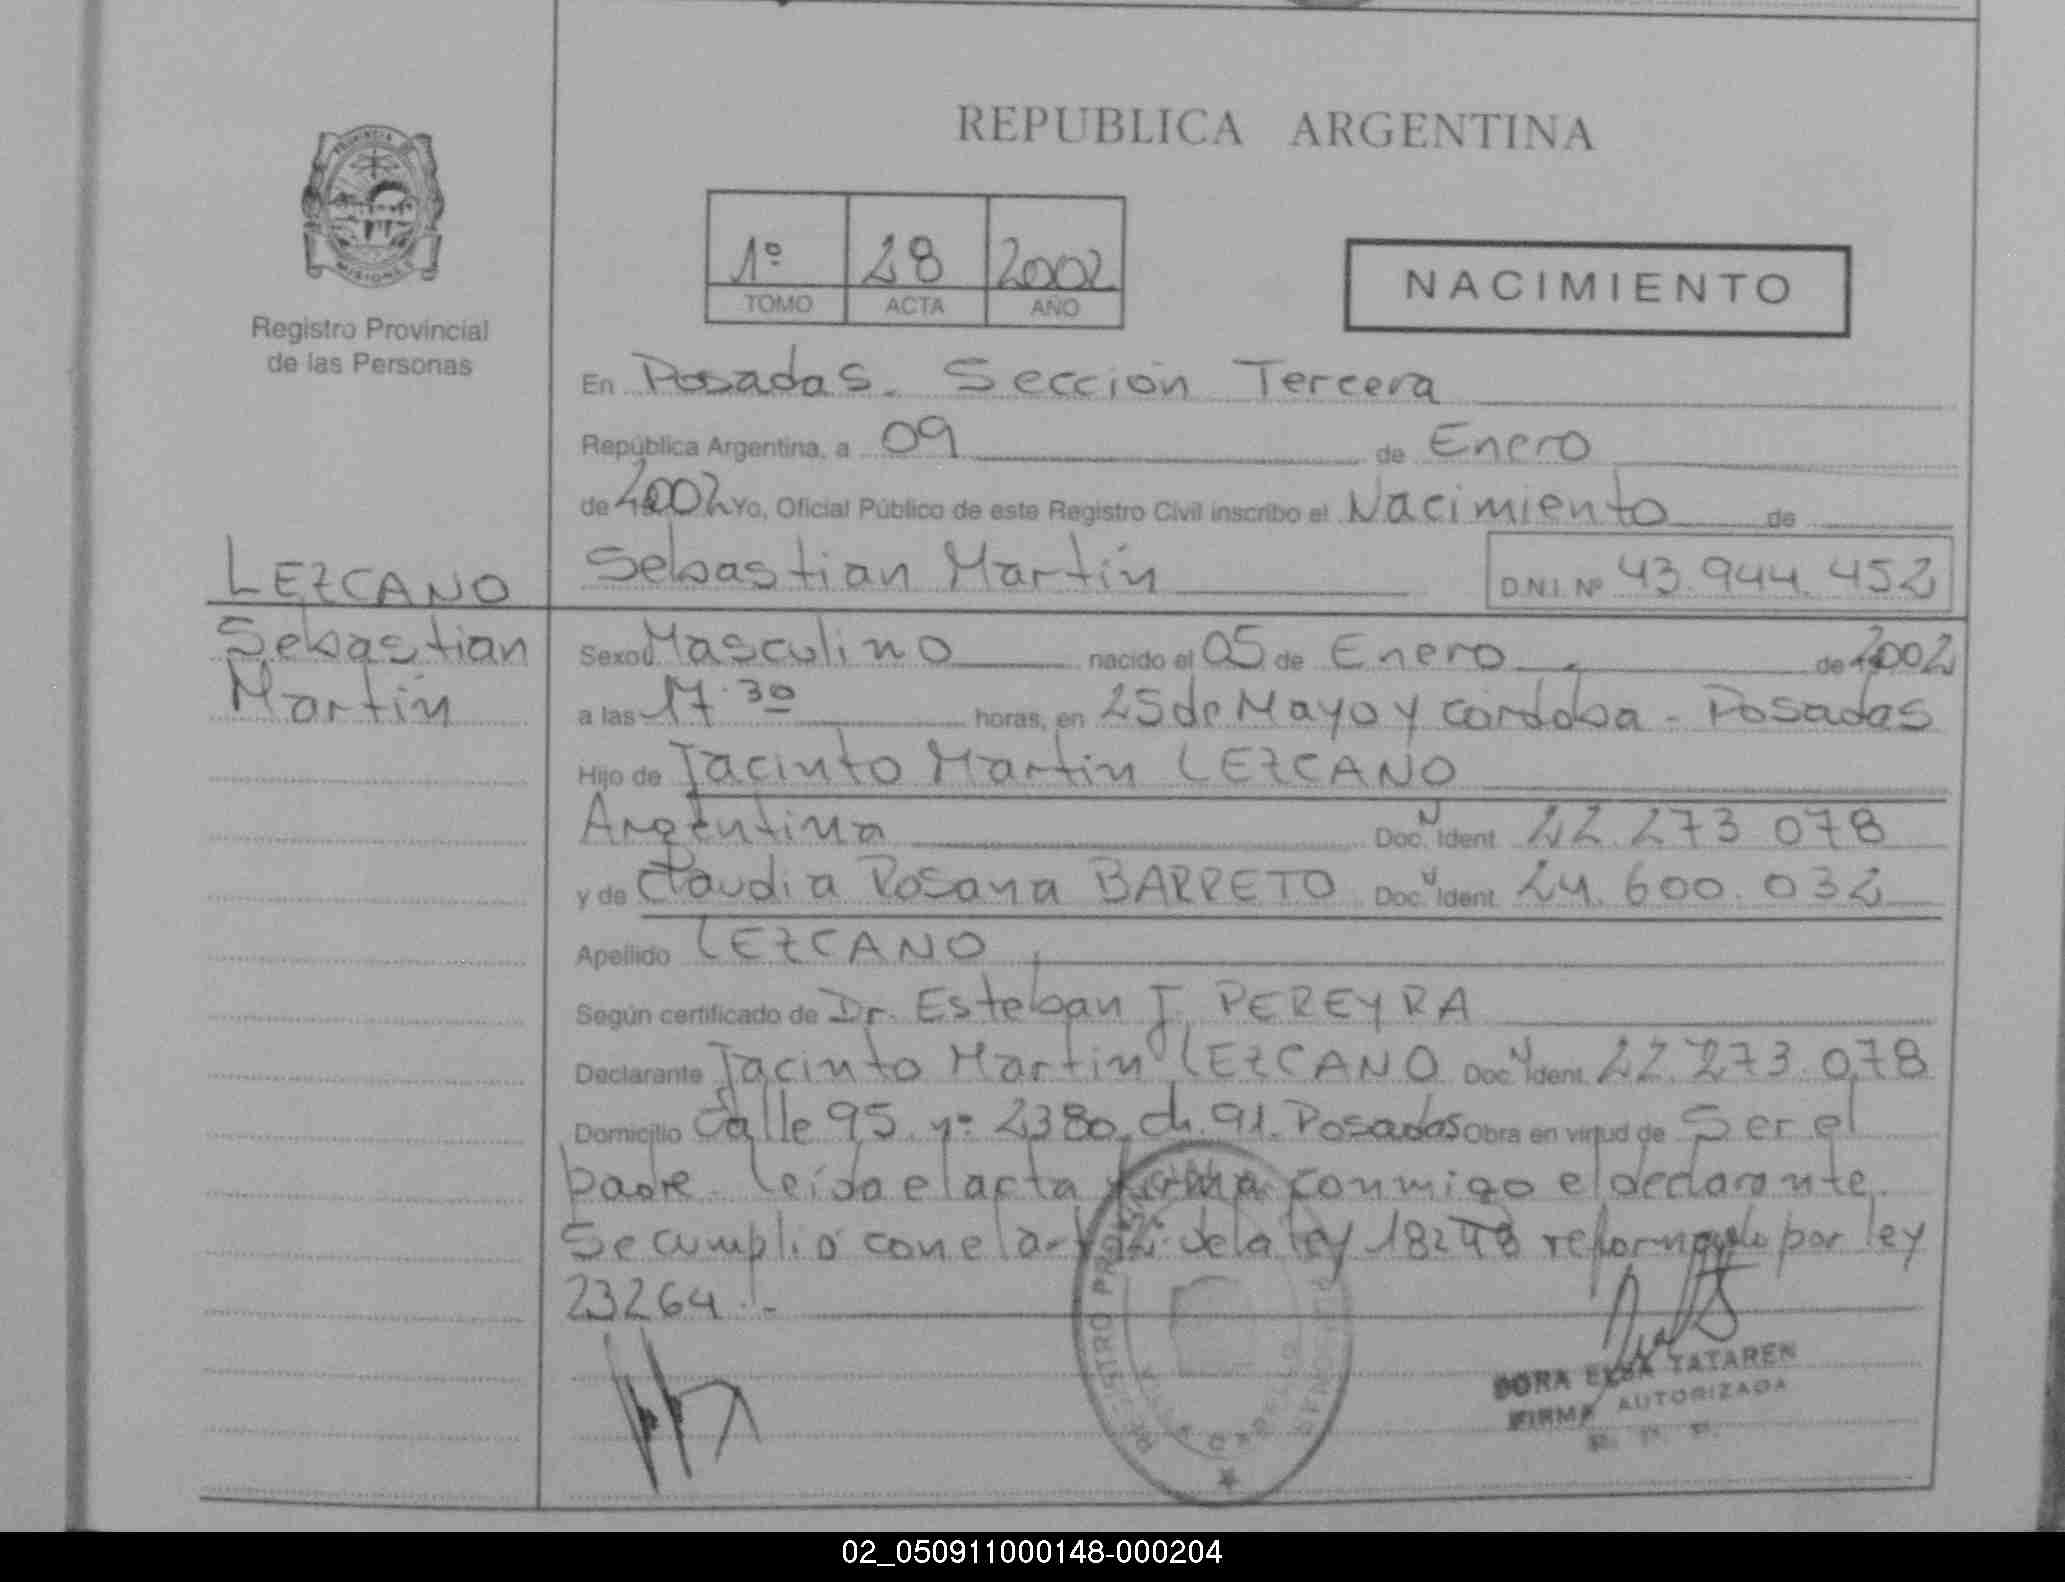 REPUBLICA ARGENTINA
1º 28 2002
TOMO ACTA AÑO
NACIMIENTO
PROVINCIA DE
MISIONES
Registro Provincial
de las Personas
En Posadas. Sección Tercera
República Argentina, a 09 de Enero
de 2002 Yo, Oficial Público de este Registro Civil inscribo el Nacimiento de
Sebastian Martín D.N.I. Nº 43.944.452
LEZCANO
Sebastian
Martín
Sexo Masculino nacido el 05 de Enero de 2002
a las 17.30 horas, en 25 de Mayo y Córdoba - Posadas
Hijo de Jacinto Martin LEZCANO
Argentina Doc. N Ident. 22.273.078
y de Claudia Rosana BARRETO Doc. N Ident. 24.600.032
Apellido LEZCANO
Según certificado de Dr. Esteban J. PEREYRA
Declarante Jacinto Martin LEZCANO Doc. N Ident. 22.273.078
Domicilio Calle 95 nº 2380 ch. 91. Posadas Obra en virtud de Ser el
padre. leída el acta firma conmigo el declarante.
Se cumplió con el art de la ley 18248 reformado por ley
23264.-
DORA ELSA TATAREN
FIRMA AUTORIZADA
02_050911000148-000204